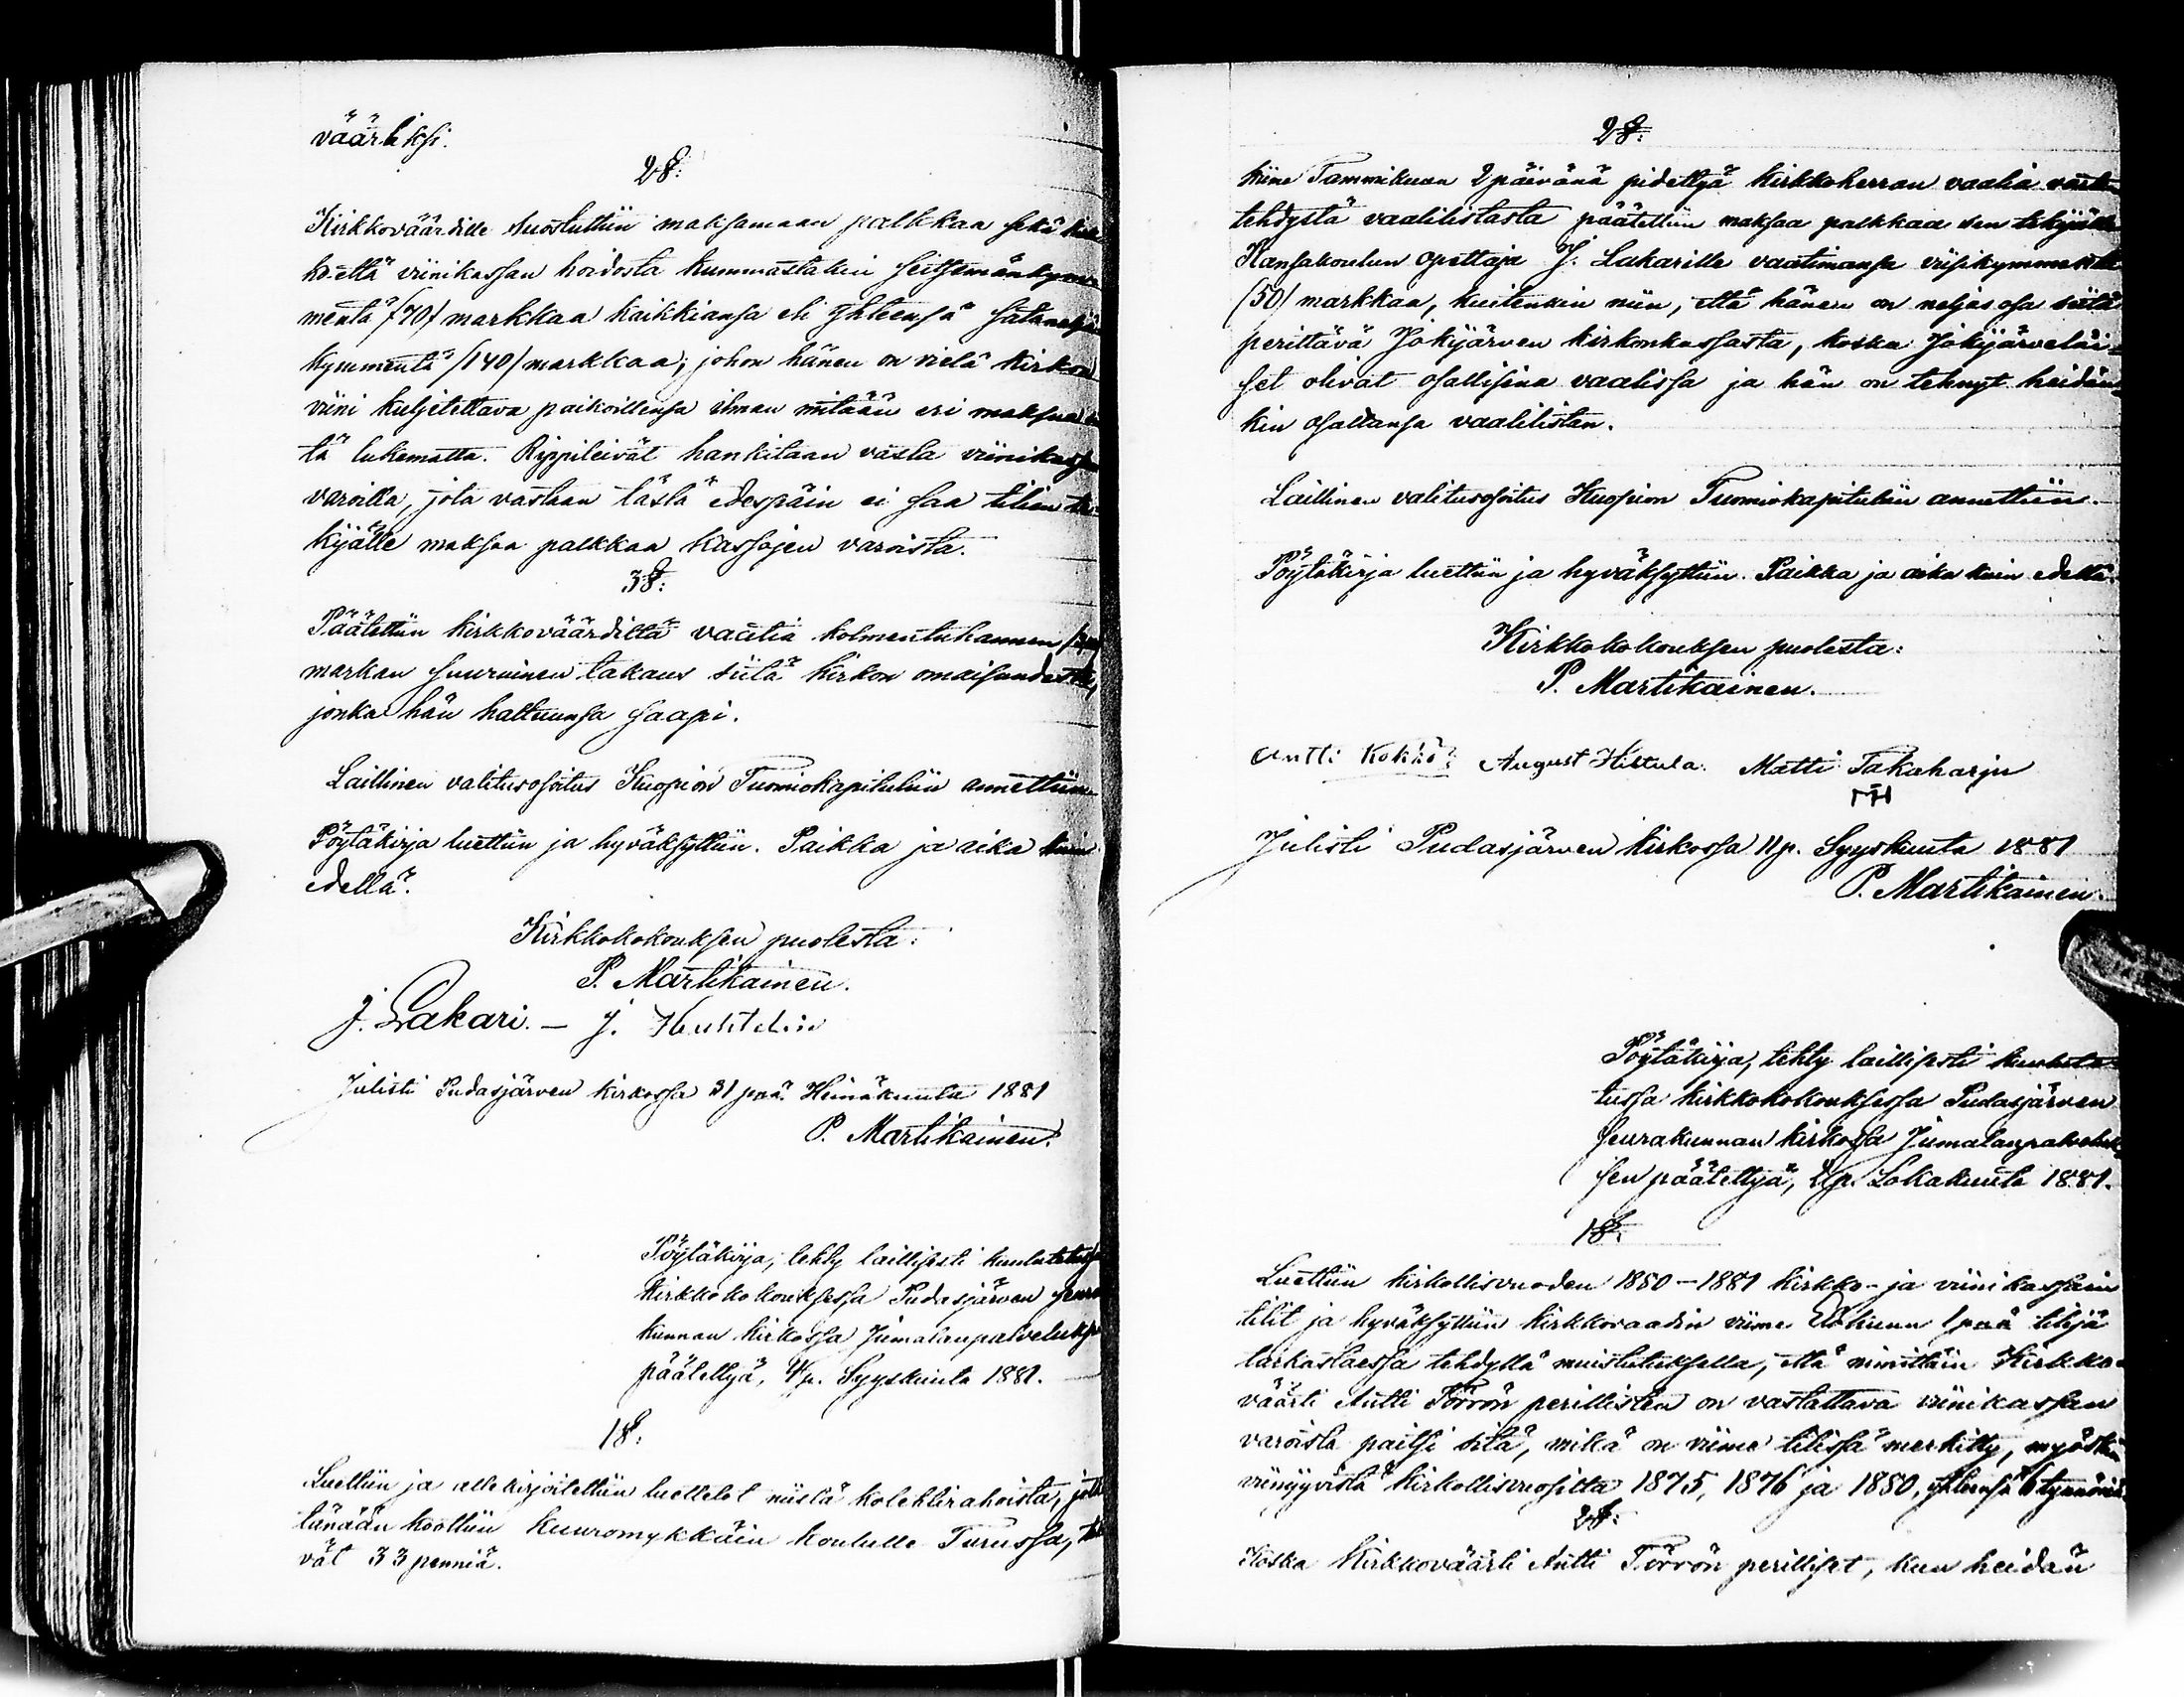 väärtiksi.
2 §:
Kirkkoväärdille suostuttiin maksamaan palkkaa sekä
ko että viinikassan hoidosta kummastakin seitsemänkym
mentä /70/ markkaa kaikkiansa eli yhteensä sataneljä
kymmentä /140/ markkaa; johon hänen on vielä kirkon
viini kuljetettava paikoillensa ilman mitään eri maksua
tä lukematta. Rippileivät hankitaan vasta viinikassan
varoilla, jota vastaan tästä edespäin ei saa tilien te-
kijälle maksaa palkkaa kassojen varoista.
3 §:
Päätettiin kirkkoväärdiltä vaatia kolmentuhannen
markan suuruinen takaus siitä kirkon omaisuudesta,
jonka hän haltuunsa saapi.
Laillinen valitusosoitus Kuopion Tuomiokapituliin annettiin.
Pöytäkirja luettiin ja hyväksyttiin. Paikka ja aika kuin
edellä.
Kirkkokokouksen puolesta:
P. Martikainen.
J. Lakari. — J. Huhtelin
Julisti Pudasjärven kirkossa 31 pnä Heinäkuuta 1881
P. Martikainen.
Pöytäkirja, tehty laillisesti kuulutetussa
kirkkokokouksessa Pudasjärven seura
kunnan kirkossa Jumalanpalveluksen
päätettyä, 4 p. Syyskuuta 1881.
1 §:
Luettiin ja allekirjoitettiin luettelot niistä kolehtirahoista, jotka
tänään koottiin kuuromykkäin koululle Turussa,
vät 33 penniä.
2 §:
Viime Tammikuun 2 päivänä pidettyä kirkkoherran vaalia varten
tehdystä vaalilistasta päätettiin maksaa palkkaa sen tekijälle
Kansakoulun opettaja J. Lakarille vaatimansa viisikymmentä
/50/ markkaa, kuitenkin niin, että hänen on neljäsosa siitä
perittävä Jokijärven kirkonkassasta, koska Jokijärveläi-
set olivat osallisina vaalissa ja hän on tehnyt heidän-
kin osaltansa vaalilistan.
Laillinen valitusosoitus Kuopion Tuomiokapituliin annettiin.
Pöytäkirja luettiin ja hyväksyttiin. Paikka ja aika kuin edellä.
Kirkkokokouksen puolesta:
P. Martikainen.
Antti Kokko August Hiltula. Matti Takaharju
Julisti Pudasjärven kirkossa 11 p. Syyskuuta 1881
P. Martikainen.
Pöytäkirja, tehty laillisesti kuulute-
tussa kirkkokokouksessa Pudasjärven
seurakunnan kirkossa Jumalanpalveluk-
sen päätettyä, p. Lokakuuta 1881.
1 §:
Luettiin kirkollisvuoden 1880–1881 kirkko- ja viinikassain
tilit ja hyväksyttiin kirkkoraadin viime Elokuun 1 pnä tilejä
tarkastaessa tehdyllä muistutuksella, että nimittäin Kirkko-
väärti Antti Törrön perillisten on vastattava viinikassan
varoista paitsi sitä, mikä on viime tilissä merkitty, myöskin
viinijyvistä kirkollisvuosilta 1875, 1876 ja 1880, yhteensä 6 tynnöriä.
2 §:
Koska Kirkkoväärti Antti Törrön perilliset, kun heidän